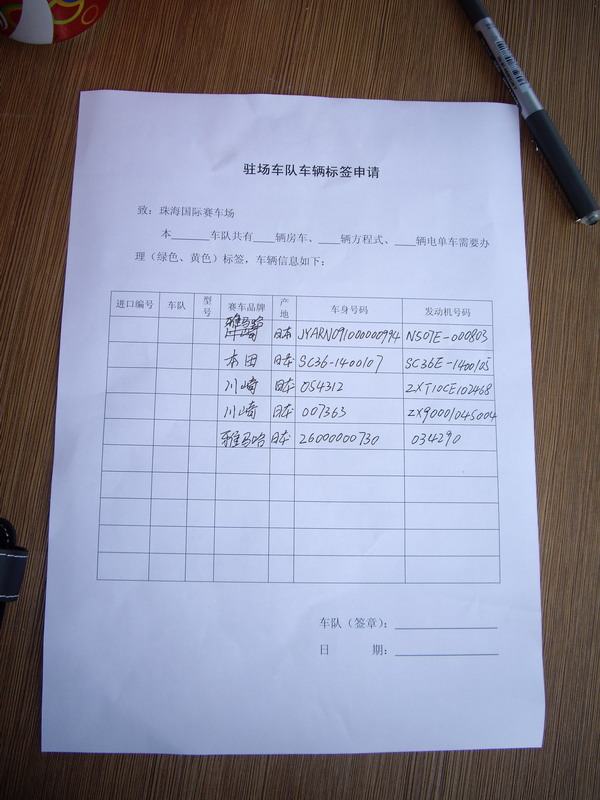 驻场车队车辆标签申请
致：珠海国际赛车场
本______车队共有____辆房车、____辆方程式、____辆电单车需要办
理（绿色、黄色）标签，车辆信息如下：
进口编号 车队 型号 赛车品牌 产地 车身号码 发动机号码
雅马哈
川崎 日本 JYARN091000000994 N507E-000803
本田 日本 SC36-1400107 SC36E-1400105
川崎 日本 054312 ZXT10CE102468
川崎 日本 007363 ZX90001045004
雅马哈 日本 26000000730 034290
车队（签章）：
日 期：